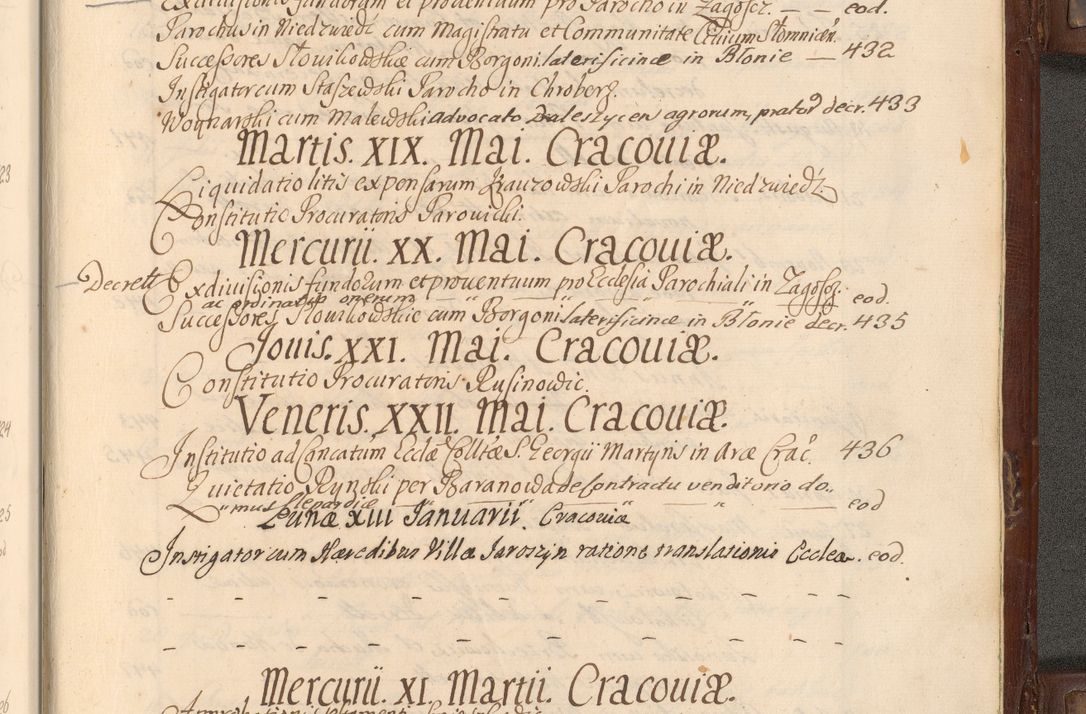 Exdivisionis fundorum et proventuum pro Parocho in Zagosz. — — eod.
Parochus in Niedzwiedz cum Magistratu et Communitate Civium Słomnicen.
Successores Słowikowskie cum Borgoni laterificinae in Błonie — 432
Instigator cum Staszewski Parocho in Chroberz.
Woynarski cum Malewski advocato Daleszycen agrorum, prator decr. 433
Martis. XIX. Mai. Cracouiæ.
Liquidatio litis expensarum Krauzowski Parochi in Niedzwiedz
Constitutio Procuratoris Parowicki.
Mercurii. XX. Mai. Cracouiæ.
Decrett Exdivisionis fundorum et proventuum pro Ecclesia Parochiali in Zagosz.
ac ordinatio onerum — " — " — " — eod.
Successores Słowikowskie cum Borgoni laterificinae in Błonie decr. 435
Jouis. XXI. Mai. Cracouiæ.
Constitutio Procuratoris Rusinowic.
Veneris. XXII. Mai. Cracouiæ.
Institutio ad Concatum Ecclæ Colltæ S. Georgii Martyris in Arce Crac. 436
Quietatio Rynski per Baranowa de Contractu venditorio do..
"mus Clepardiæ — " — " — " — eod
Lunæ XIII Januarii Cracouiæ
Instigator cum Hæredibus Villæ Jaroszyn ratione translationis Ecclea. eod.
- - - - - - - - - -
- - - - - - - - - -
Mercurii. XI. Martii. Cracouiæ.